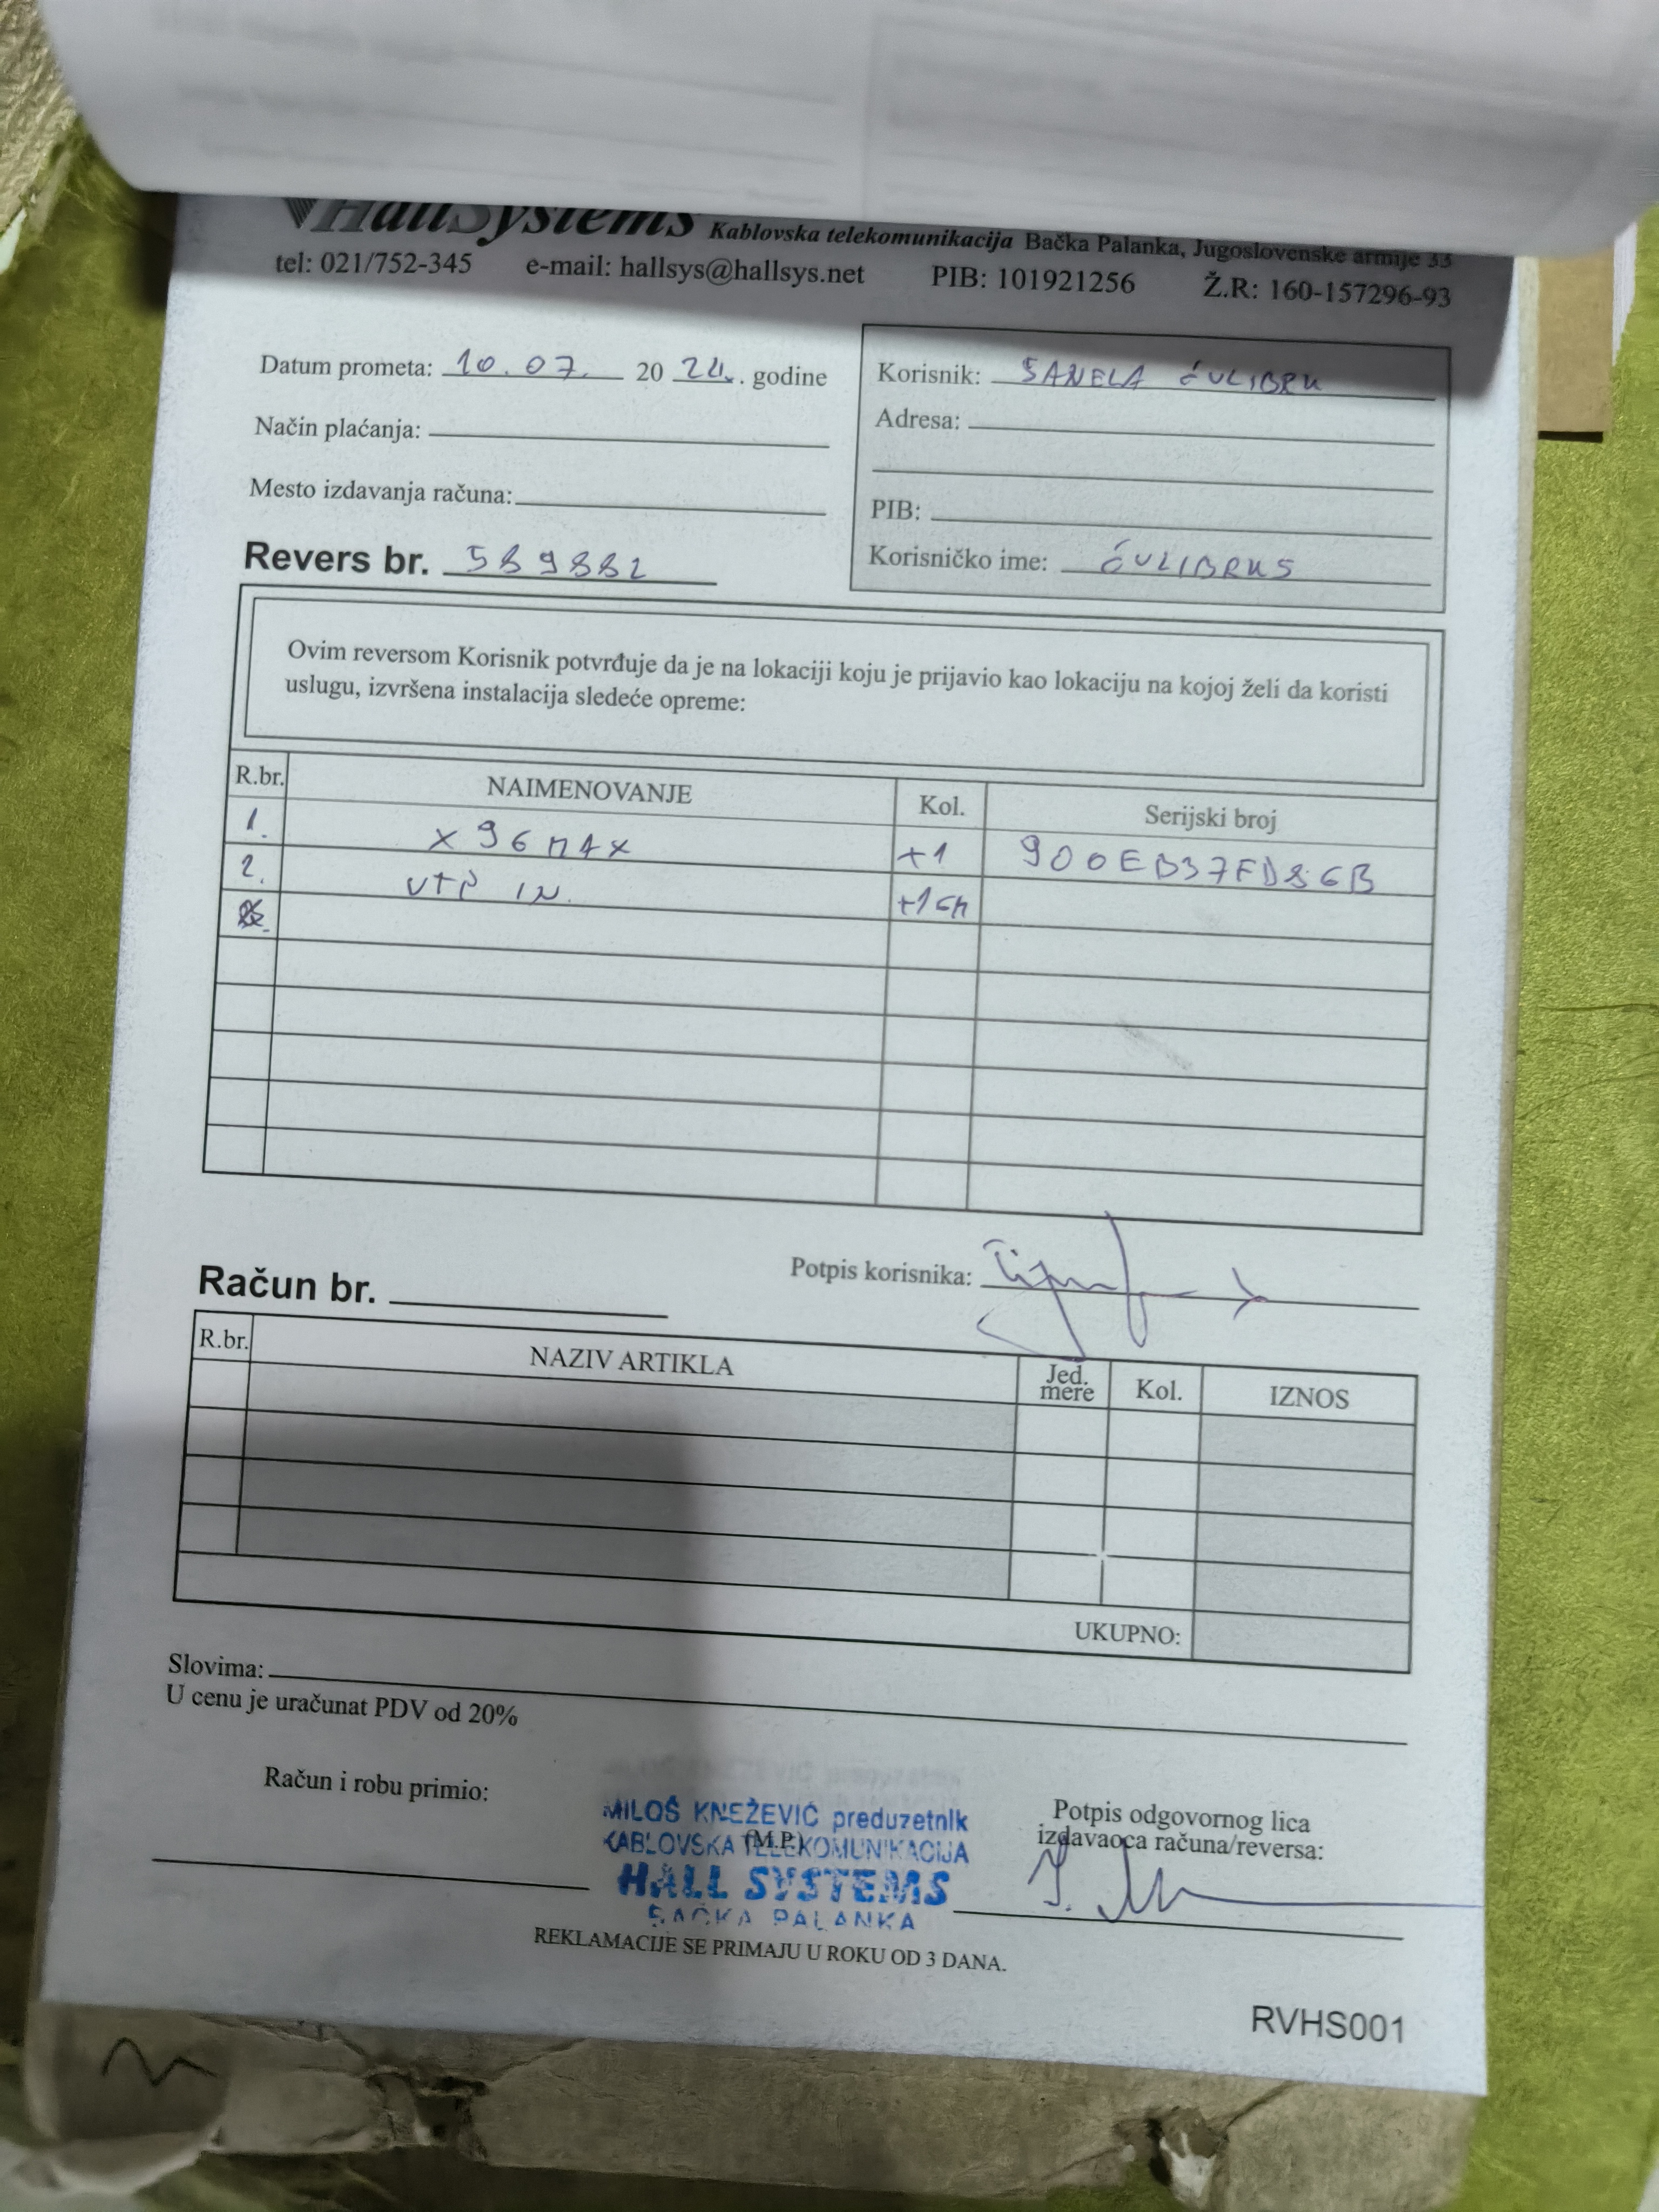 HallSystems Kablovska telekomunikacija Bačka Palanka, Jugoslovenske armije 33
tel: 021/752-345 e-mail: hallsys@hallsys.net PIB: 101921256 Ž.R: 160-157296-93
Datum prometa: 10.07. 2024. godine
Način plaćanja:
Mesto izdavanja računa:
Revers br. 589882
Korisnik: SANELA ĆULIBRK
Adresa:
PIB:
Korisničko ime: ĆULIBRKS
Ovim reversom Korisnik potvrđuje da je na lokaciji koju je prijavio kao lokaciju na kojoj želi da koristi
uslugu, izvršena instalacija sledeće opreme:
R.br. NAIMENOVANJE Kol. Serijski broj
1. X96MAX +1 900EB37FD86B
2. UTP IN. +1
Potpis korisnika:
Račun br.
R.br. NAZIV ARTIKLA Jed. mere Kol. IZNOS
UKUPNO:
Slovima:
U cenu je uračunat PDV od 20%
Račun i robu primio:
(M.P.)
MILOŠ KNEŽEVIĆ preduzetnik
KABLOVSKA TELEKOMUNIKACIJA
HALL SYSTEMS
BAČKA PALANKA
Potpis odgovornog lica
izdavaoca računa/reversa:
REKLAMACIJE SE PRIMAJU U ROKU OD 3 DANA.
RVHS001